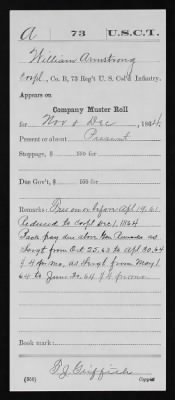 A | 73 | U.S.C.T.
William Armstrong
Corpl, Co. B, 73 Reg't U. S. Col'd Infantry.
Appears on
Company Muster Roll
for Nov & Dec, 1864.
Present or about Present
Stoppage, $ 100 for
Due Gov't, $ 100 for
Remarks: Free on or before Apl 19. 61
Reduced to Corpl Dec 1, 1864
pay due above
Sergt from Oct 25, 63 to Apl 30. 64
$ 4 pr. mo. as Sergt from May 1
64 to June 30. 64 $ 4 pr. mo
Book mark:
(358)
Copyist.